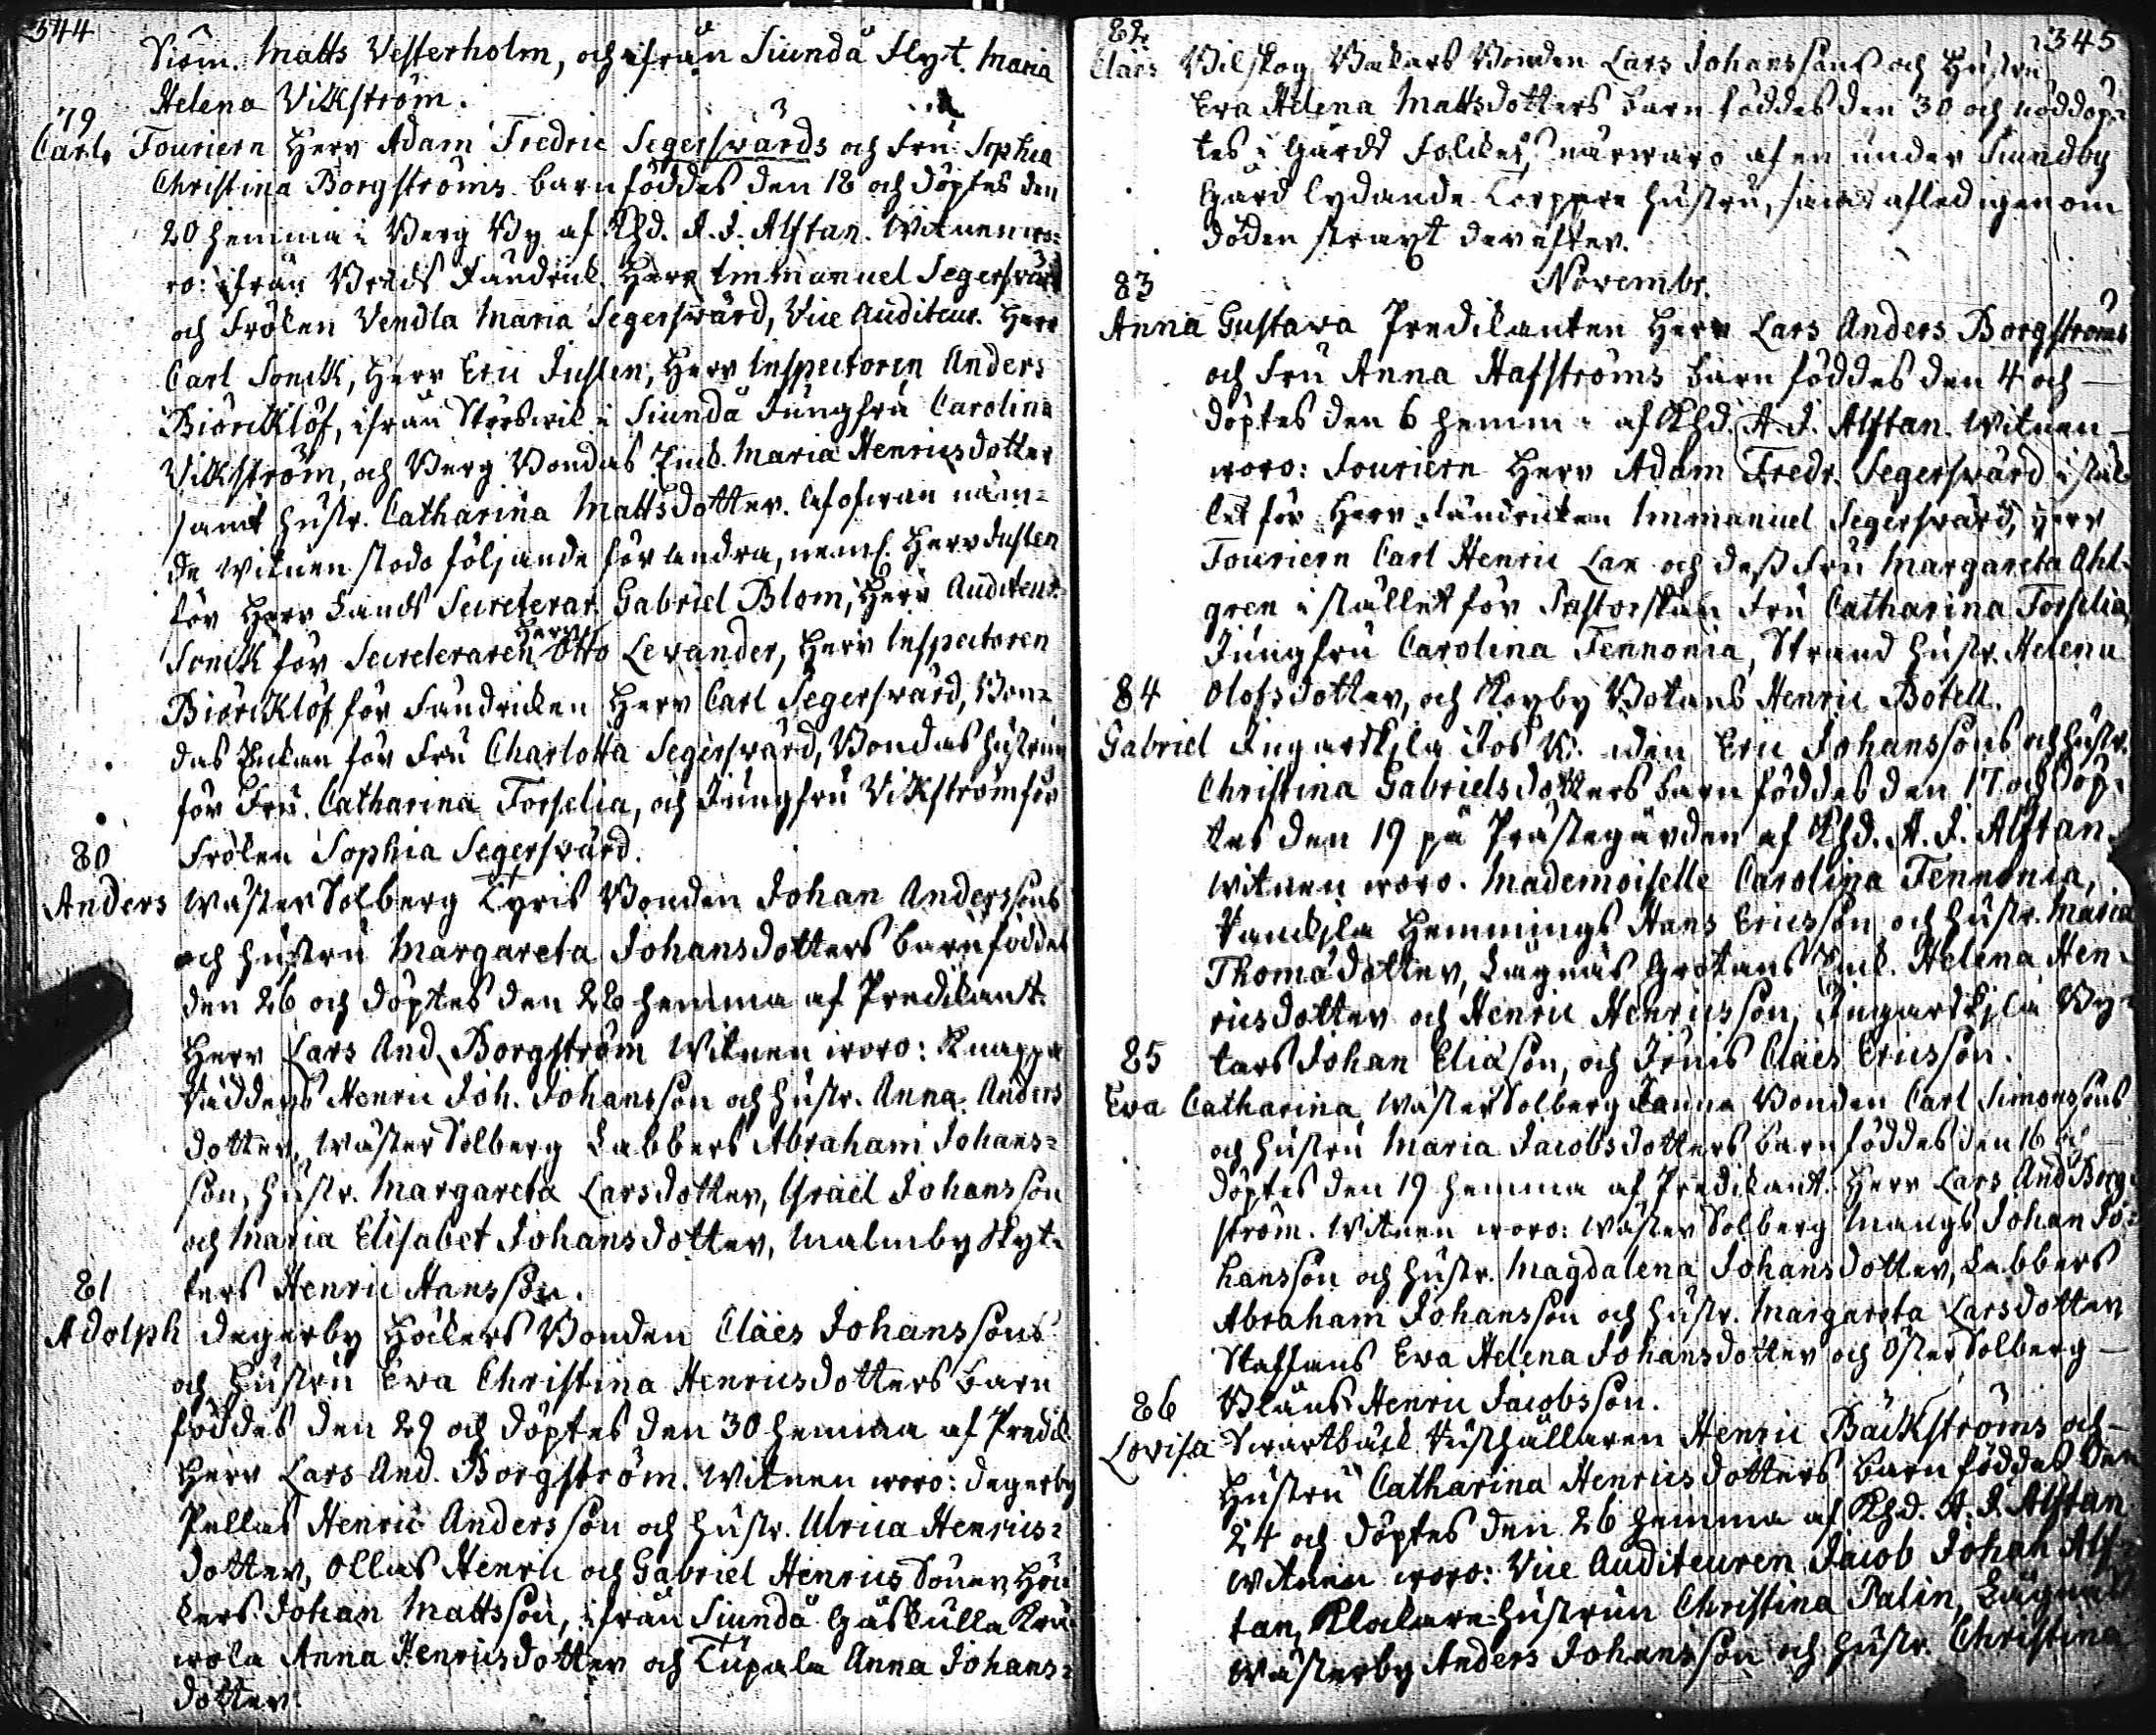 344
Siöm. Matts Vesterholm, och ifrån Siundå Flyt. Maria
Helena Vikström.
79
Carl, Fouriern Herr Adam Fredric Segersvärds och Fru Sophia
Christina Borgströms barn föddes den 18 och döptes den
20 hemma i Berg By af Khd. A. J. Alftan. Witnen wo=
ro: ifrån Fändrick. Herr Immanuel Segersvärd
och Frölen Vendla Maria Segersvärd, Vice Auditeur. Herr
Carl Sonck, Herr Eric Juslen, Herr Inspectoren Anders
Biörcklöf, ifrån Störsvik i Siundå Jungfru Carolina
Vikström, och Berg Bondas Enck. Maria Henricsdotter
samt hustr. Catharina Mattsdotter. Af ofwan näm=
de witnen stodo följande för andra, neml. Herr Juslen
för Herr Lands Secreterar. Gabriel Blom, Herr Auditeur
Sonck för Secreteraren Herr Otto Levander, Herr Inspectoren
Biörcklöf för Fändricken Herr Carl Segersvärd, Bon=
das Enckan för Fru Charlotta Segersvärd, Bondas hustrun
för Fru Catharina Forselia, och Jungfru Vikström för
Frölen Sophia Segersvärd.
80
Anders Wäster Solberg Tyris Bonden Johan Anderssons
och hustru Margareta Johansdotters barn föddes
den 26 och döptes den 28 hemma af Predikant.
Herr Lars And. Borgström Witnen woro: Knapps
Henric Joh. Johansson och hustr. Anna Anders
dotter, Wäster Solberg Labbers Abraham Johans=
son, hustr. Margareta Larsdotter, Israel Johansson
och Maria Elisabet Johansdotter, Malmby Skyt=
ters Henric Hansson.
81
Adolph Degerby Höckers Bonden Claës Johanssons
och Hustru Eva Christina Henricsdotters barn
föddes den 29 och döptes den 30 hemma af Predik.
Herr Lars And. Borgström. Witnen woro: Degerby
Pellas Henric Andersson och hustr. Ulrica Henrics=
dotter, Ollas Henric och Gabriel Henrics Söner, Höc
kers Johan Mattsson, ifrån Siundå Gåskulla
Anna Henricsdotter och Tupala Anna Johans=
dotter.
345
82
Claës Vilskog Backars Bonden Lars Johanssons och Hustru
Eva Helena Mattsdotters barn föddes den 30 och nöddöp=
tes i Gårds Folckets närwaro af en under Siundby
Gård lydande Torppare hustru, samt afled igenom
döden straxt derefter.
Novembr.
83
Anna Gustava Predikanten Herr Lars Anders Borgströms
och Fru Anna Hafströms barn föddes den 4 och
döptes den 6 hemma af Khd. A. J. Alftan. Witnen
woro: Fouriern Herr Adam Fredr. Segersvärd i stäl
let för Herr Fändricken Immanuel Segersvärd, Herr
Fouriern Carl Henric Lax och dess Fru Margareta Ahl=
gren i stället för Pastorskan Fru Catharina Forselia,
Jungfru Carolina Fennonia, Strand hustr. Helena
Olofsdotter, och Koxby Botans Henric Botell.
84
Gabriel Ingarskjla Jös Eric Johanssons och hustr.
Christina Gabrielsdotters barn föddes den 17 och döp=
tes den 19 på Prästegården af Khd. A. J. Alftan.
Witnen woro. Mademoiselle Carolina Fennonia,
Hemmings Hans Ericsson och hustr. Maria
Thomadotter, Lågnäs Grötans Enck. Helena Hen=
ricsdotter och Henric Henricsson, Ingarskjla By=
tars Johan Eliäson, och Jönis Claës Ericsson.
85
Eva Catharina Wäster Solberg Janne Bonden Carl Simonssons
och hustru Maria Jacobsdotters barn föddes den 16 och
döptes den 19 hemma af Predikant. Herr Lars And Borg=
ström. Witnen woro: Wäster Solberg Mangs Johan Jo=
hansson och hustr. Magdalena Johansdotter, Labbers
Abraham Johansson och hustr. Margareta Larsdotter
Staffans Eva Helena Johansdotter och Öster Solberg
Blåus Henric Jacobsson.
86
Lovisa Svartbäck Hushållaren Henric Bäckströms och
Hustru Catharina Henricsdotters barn föddes den
24 och döptes den 26 hemma af Khd. A. J. Alftan
Witnen woro: Vice Auditeuren Jacob Johan Alf=
tan, Klockare-hustrun Christina Palin, Lågnäs
Wästerby Anders Johansson och hustr. Christina